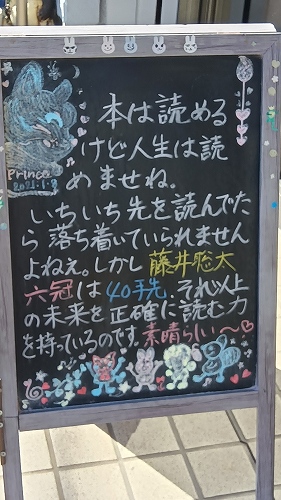 Prince
2021.1.2
本は読める
けど人生は読
めませね。
いちいち先を読んでた
ら落ち着いていられません
よねえ。しかし藤井聡太
六冠は40手先、それ以上
の未来を正確に読む力
を持っているのです。素晴らしい〜♡